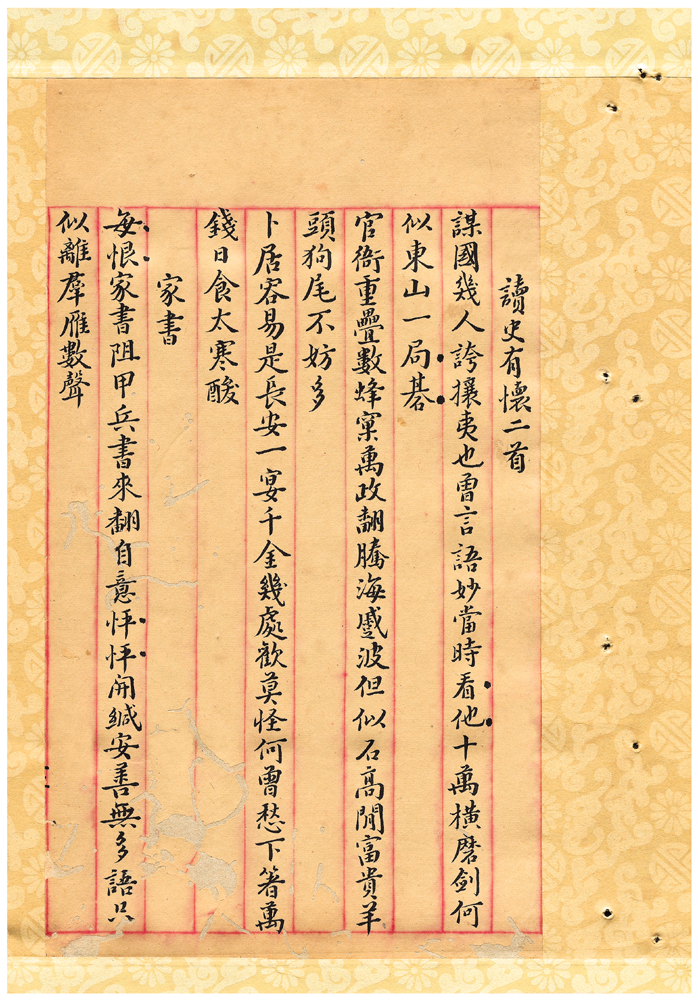 讀史有懷二首
謀國幾人誇攘夷也曾言語妙當時看他十萬橫磨劍何
似東山一局碁
官衙重疊數蜂窠萬政翻騰海蹙波但似石高閒富貴羊
頭狗尾不妨多
卜居容易是長安一宴千金幾處歡莫怪何曾愁下箸萬
錢日食太寒酸
家書
每恨家書阻甲兵書來翻自意怦怦開緘安善無多語只
似離羣雁數聲